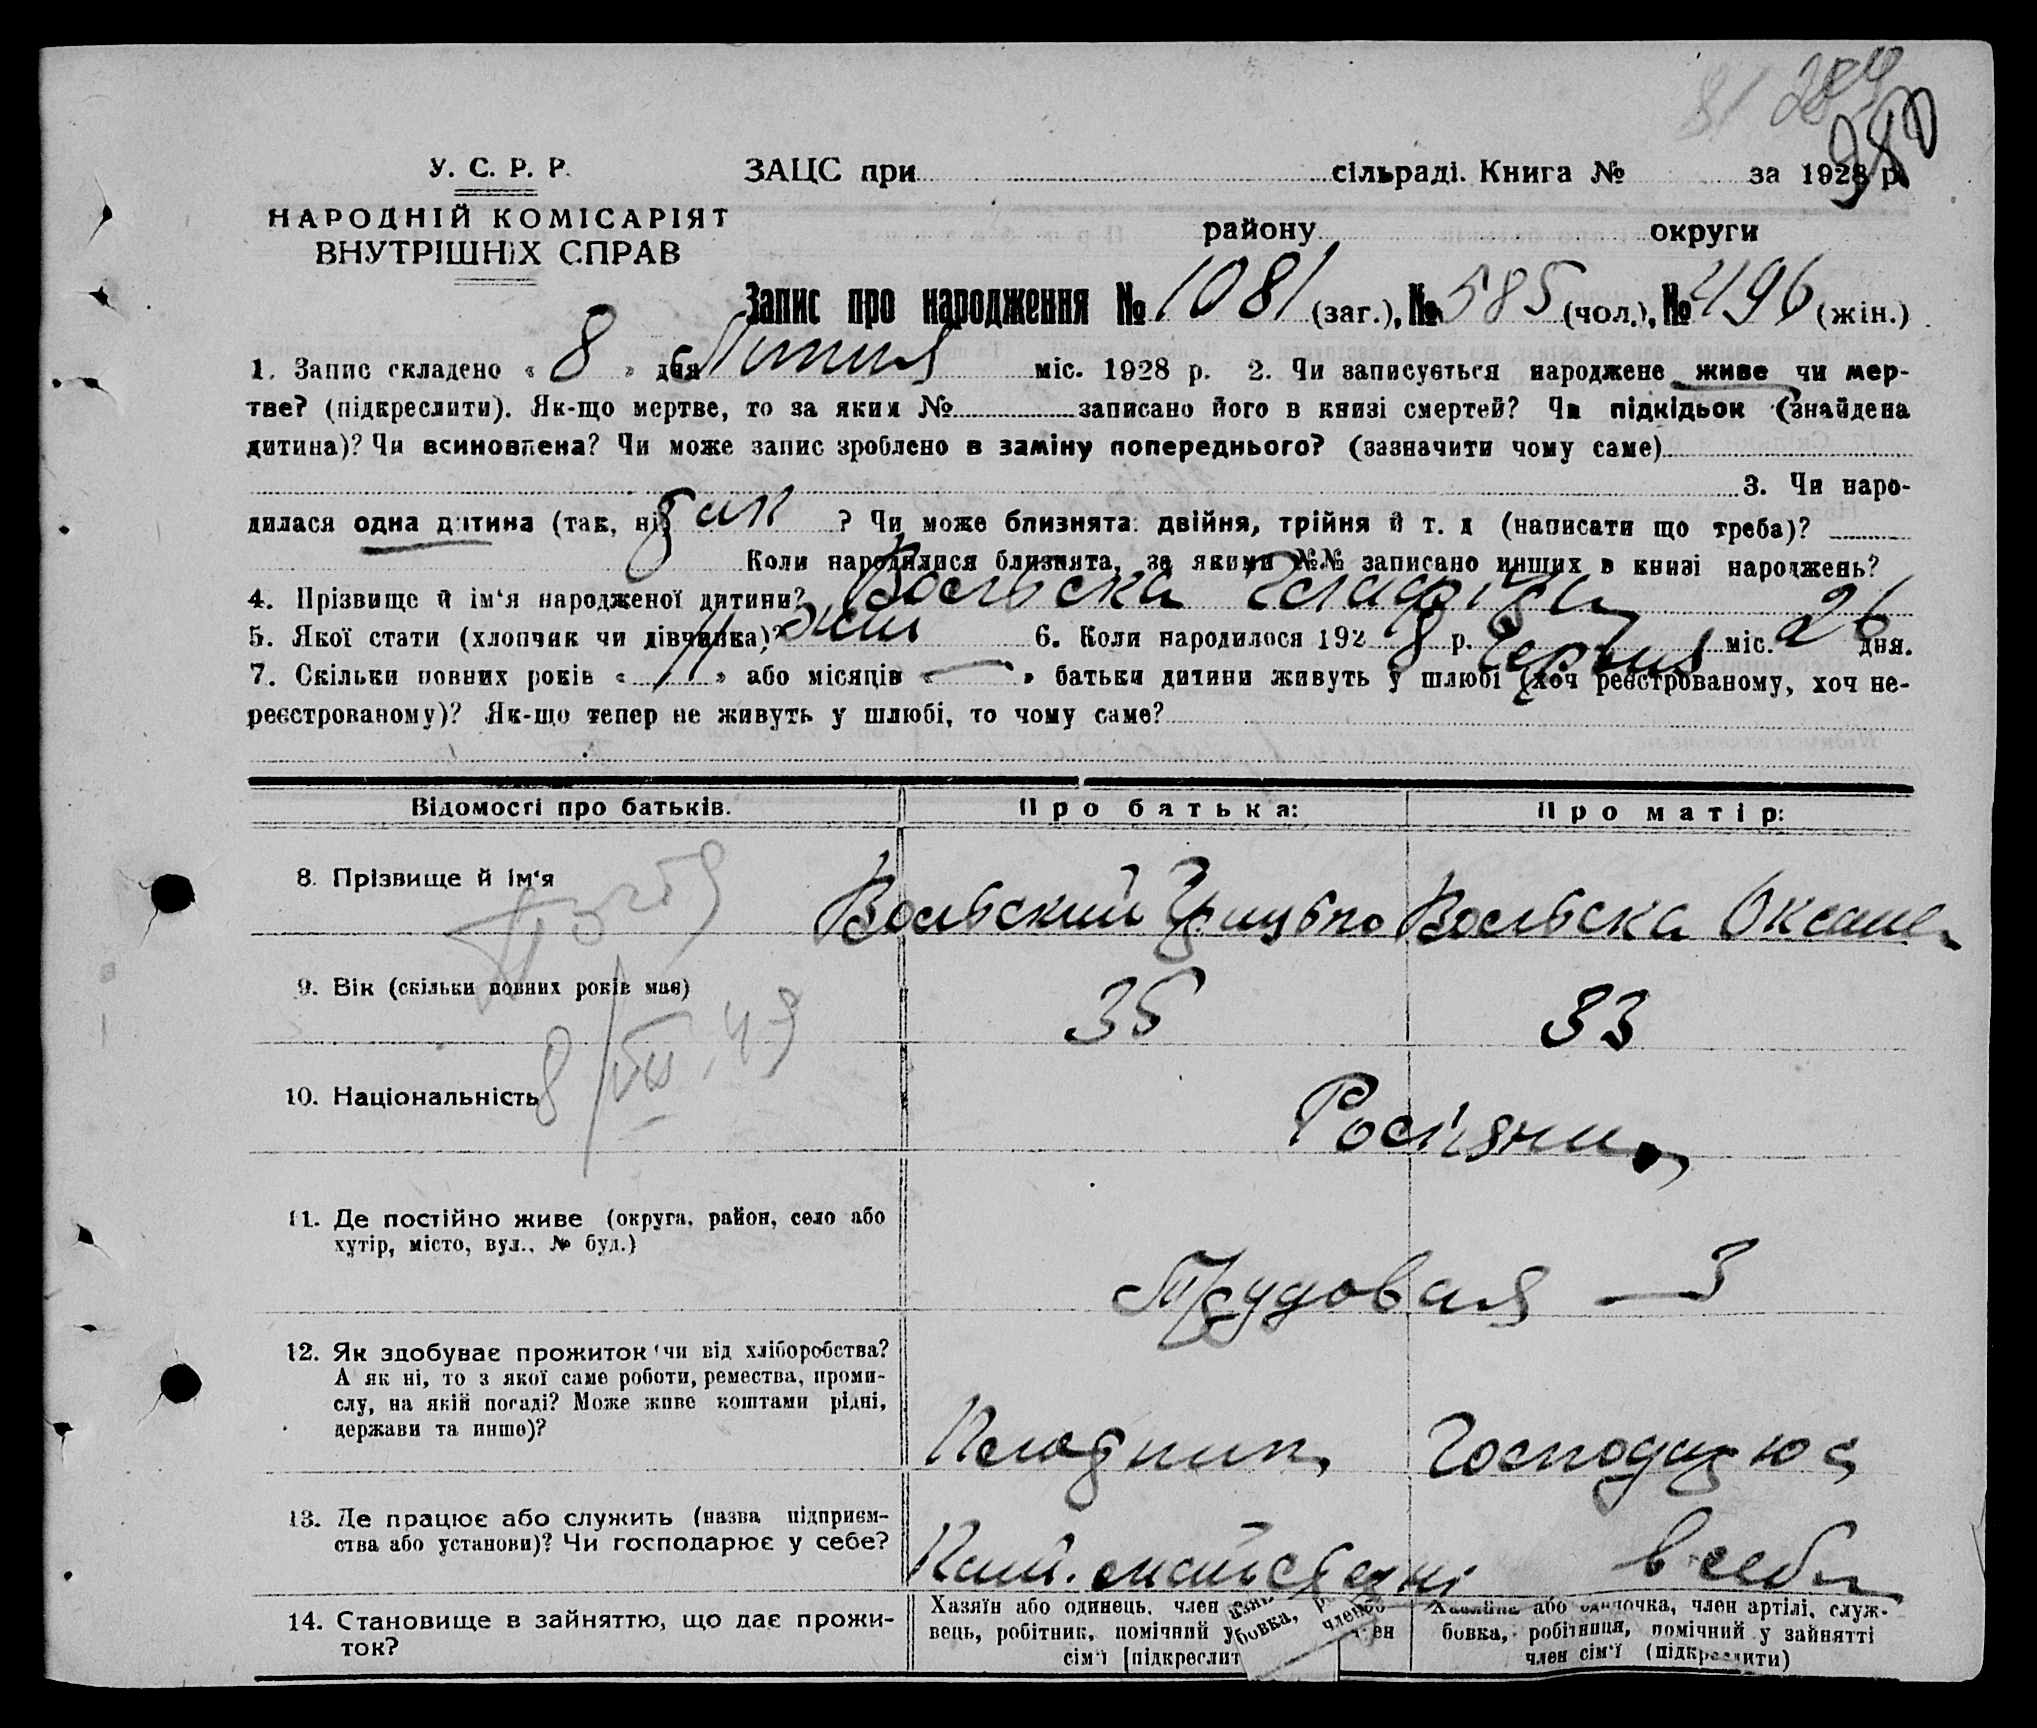 81 289
980
У. С. Р. Р.
НАРОДНІЙ КОМІСАРІЯТ
ВНУТРІШНІХ СПРАВ
ЗАЦС при сільраді. Книга № за 1928 р.
району округи
Запис про народження № 1081 (заг.), № 585 (чол.), № 496 (жін.)
1. Запис складено « 8 » дня Липня міс. 1928 р. 2. Чи записується народжене живе чи мер-
тве? (підкреслити). Як-що мертве, то за яким № записано його в книзі смертей? Чи підкідьок (знайдена
дитина)? Чи всиновлена? Чи може запис зроблено в заміну попереднього? (зазначити чому саме)
3. Чи наро-
дилася одна дитина (так, ні) так ? Чи може близнята: двійня, трійня й т. д (написати що треба)?
Коли народилися близнята, за якими №№ записано инших в книзі народжень?
4. Прізвище й ім‘я народженої дитини? Вольська
5. Якої стати (хлопчик чи дівчинка)? жін 6. Коли народилося 1928 р. Червня міс. 26 дня.
7. Скільки повних років « 11 » або місяців « — » батьки дитини живуть у шлюбі (хоч реєстрованому, хоч не-
реєстрованому)? Як-що тепер не живуть у шлюбі, то чому саме?
Відомості про батьків. Про батька: Про матір:
8. Прізвище й ім‘я Вольский Грицько Вольська Оксана
9. Вік (скільки повних років має) 35 33
8/VII.49
10. Національність Росіяни
11. Де постійно живе (округа, район, село або
хутір, місто, вул., № буд.)
Трудовая — 3
12. Як здобуває прожиток (чи від хліборобства?
А як ні, то з якої саме роботи, ремества, проми-
слу, на якій посаді? Може живе коштами рідні,
держави та инше)?
Господарює
13. Де працює або служить (назва підприєм-
ства або установи)? Чи господарює у себе?
майстерні в себе
14. Становище в зайняттю, що дає прожи-
ток?
Хазяїн або одинець, член
вець, робітник, помічний у
сім‘ї [підкреслит
Хазяйка або одиночка, член артілі, служ-
бовка, робітниця, помічний у зайнятті
член сім‘ї (підкреслити)